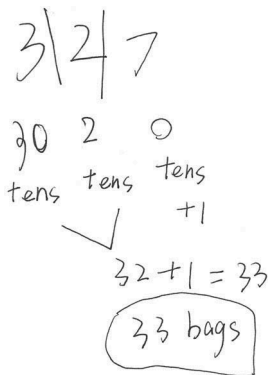 3|2|7
30 2 0
tens tens tens
+1
32+1=33
33 bags